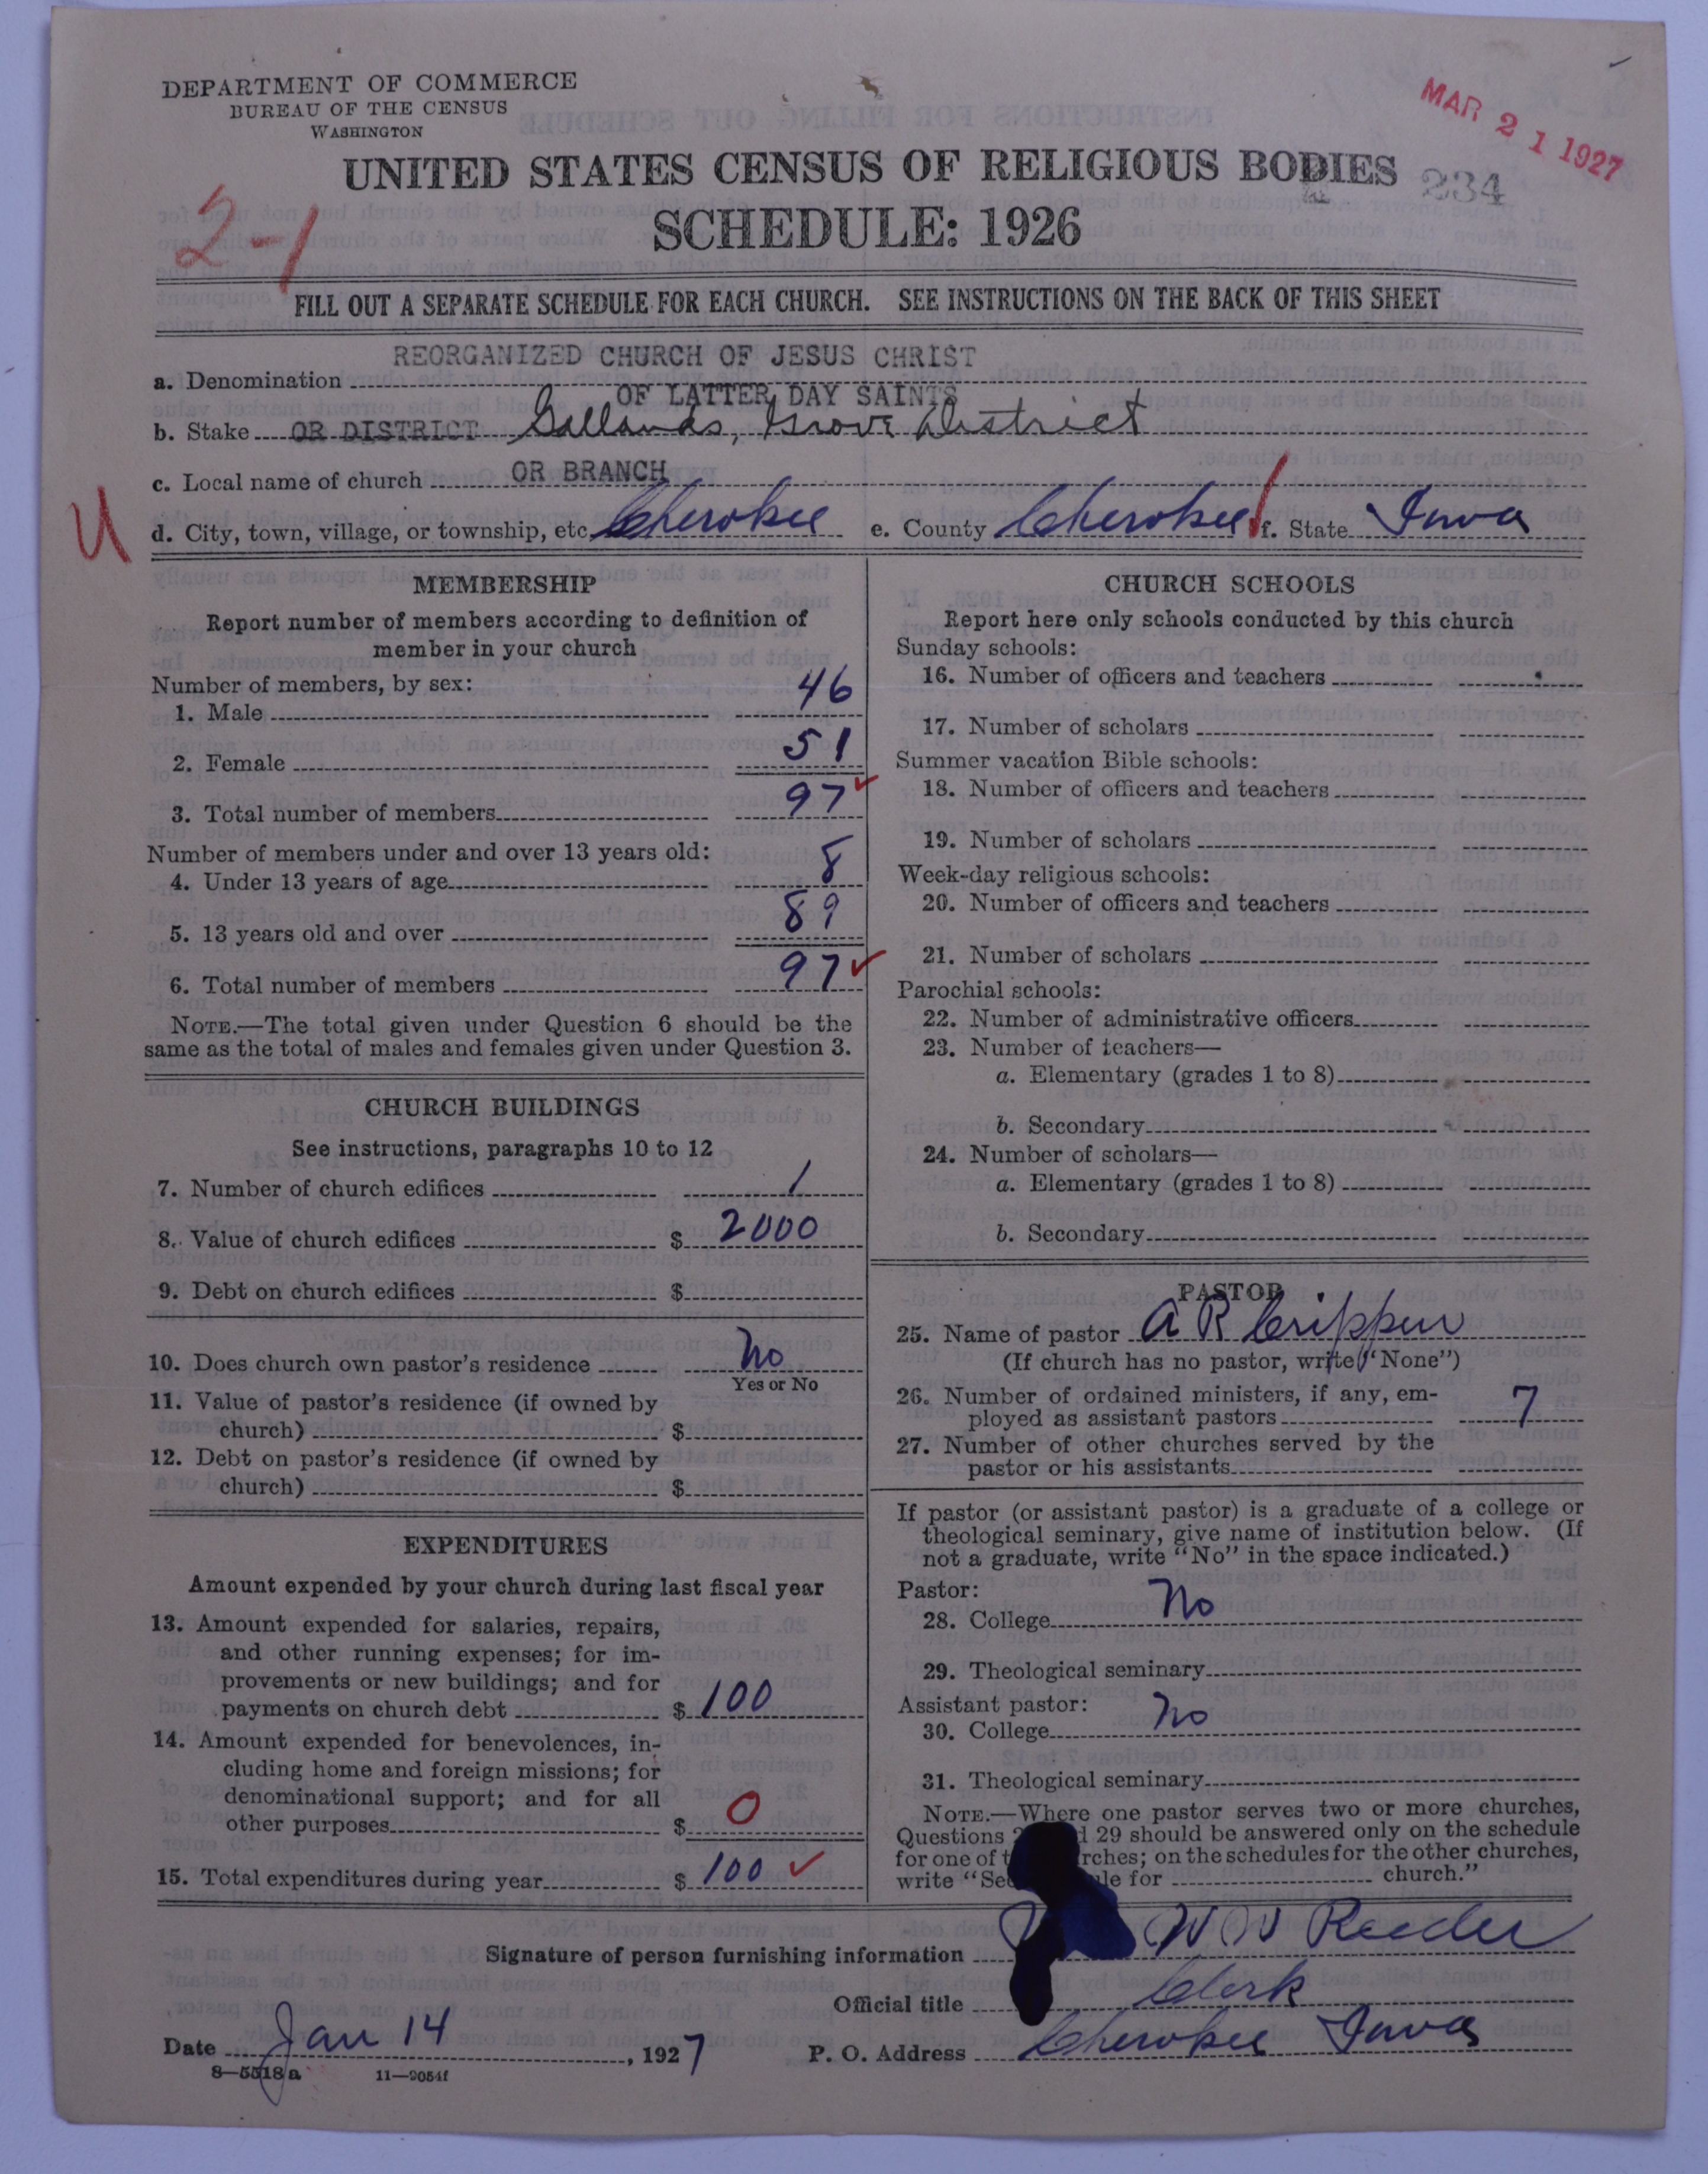 DEPARTMENT OF COMMERCE
BUREAU OF THE CENSUS
WASHINGTON
MAR 21 1927
UNITED STATES CENSUS OF RELIGIOUS BODIES
234
SCHEDULE: 1926
2-1
FILL OUT A SEPARATE SCHEDULE FOR EACH CHURCH. SEE INSTRUCTIONS ON THE BACK OF THIS SHEET
REORGANIZED CHURCH OF JESUS CHRIST
a. Denomination
OF LATTER DAY SAINTS
b. Stake OR DISTRICT Gallands, Grove District
c. Local name of church OR BRANCH
U
d. City, town, village, or township, etc. Cherokee e. County Cherokee f. State Iowa
MEMBERSHIP
Report number of members according to definition of
member in your church
Number of members, by sex:
1. Male 46
2. Female 51
3. Total number of members 97
Number of members under and over 13 years old:
4. Under 13 years of age 8
5. 13 years old and over 89
6. Total number of members 97
NOTE.—The total given under Question 6 should be the
same as the total of males and females given under Question 3.
CHURCH BUILDINGS
See instructions, paragraphs 10 to 12
7. Number of church edifices 1
8. Value of church edifices $ 2000
9. Debt on church edifices $
10. Does church own pastor's residence No
Yes or No
11. Value of pastor's residence (if owned by
church) $
12. Debt on pastor's residence (if owned by
church) $
EXPENDITURES
Amount expended by your church during last fiscal year
13. Amount expended for salaries, repairs,
and other running expenses; for im-
provements or new buildings; and for
payments on church debt $ 100
14. Amount expended for benevolences, in-
cluding home and foreign missions; for
denominational support; and for all
other purposes $ 0
15. Total expenditures during year $ 100
CHURCH SCHOOLS
Report here only schools conducted by this church
Sunday schools:
16. Number of officers and teachers
17. Number of scholars
Summer vacation Bible schools:
18. Number of officers and teachers
19. Number of scholars
Week-day religious schools:
20. Number of officers and teachers
21. Number of scholars
Parochial schools:
22. Number of administrative officers
23. Number of teachers—
a. Elementary (grades 1 to 8)
b. Secondary
24. Number of scholars—
a. Elementary (grades 1 to 8)
b. Secondary
PASTOR
25. Name of pastor A R Crippen
(If church has no pastor, write "None")
26. Number of ordained ministers, if any, em-
ployed as assistant pastors 7
27. Number of other churches served by the
pastor or his assistants
If pastor (or assistant pastor) is a graduate of a college or
theological seminary, give name of institution below. (If
not a graduate, write "No" in the space indicated.)
Pastor:
28. College No
29. Theological seminary
Assistant pastor:
30. College No
31. Theological seminary
NOTE.—Where one pastor serves two or more churches,
Questions 29 should be answered only on the schedule
for one of on the schedules for the other churches,
write for church."
Signature of person furnishing information Reeder
Official title Clerk
Date Jan 14, 1927 P. O. Address Cherokee Iowa
8—5518a 11—9054f